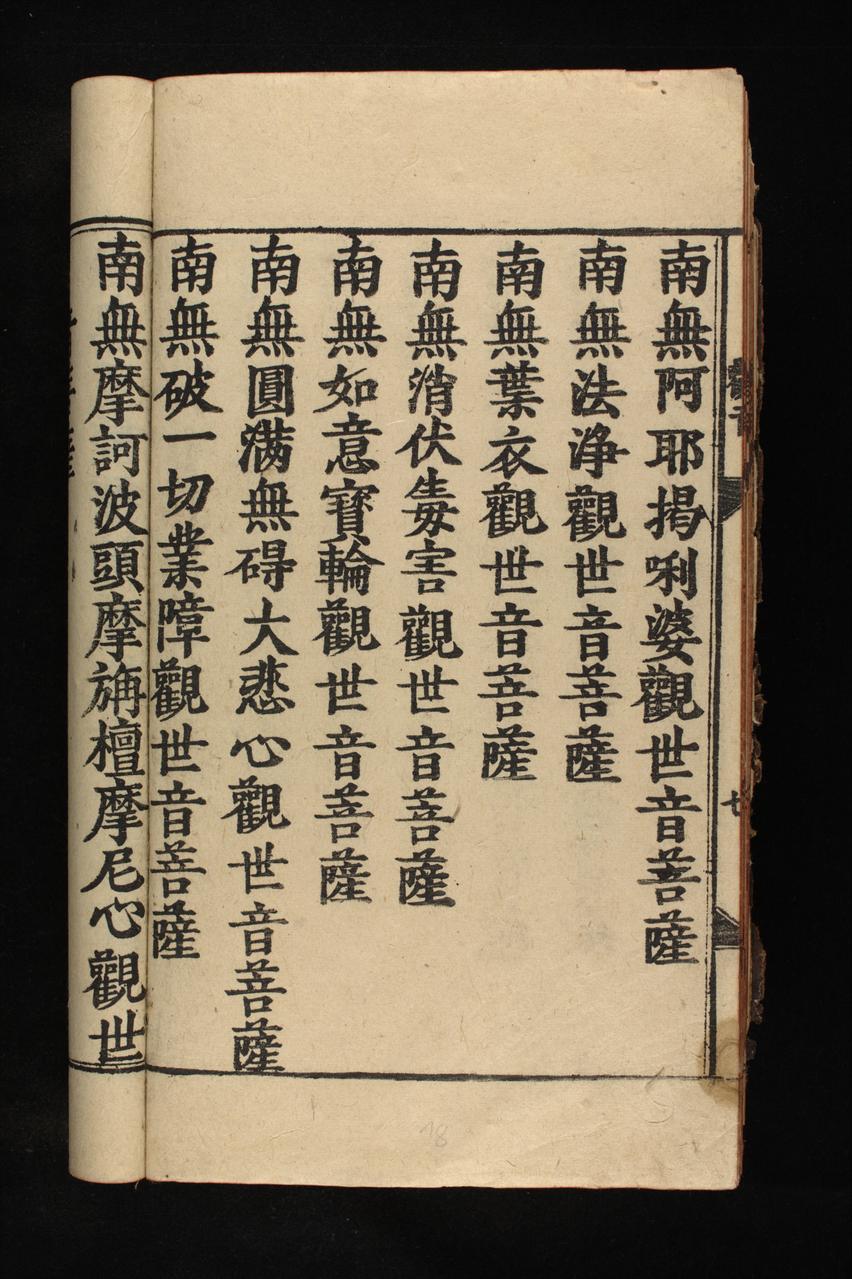 南無阿耶揭唎婆觀世音菩薩
南無法淨觀世音菩薩
南無葉衣觀世音菩薩
南無消伏毒害觀世音菩薩
南無如意寶輪觀世音菩薩
南無圓满無碍大悲心觀世音菩薩
南無破一切業障觀世音菩薩
南無摩訶波頭摩旃檀摩尼心觀世
七
18